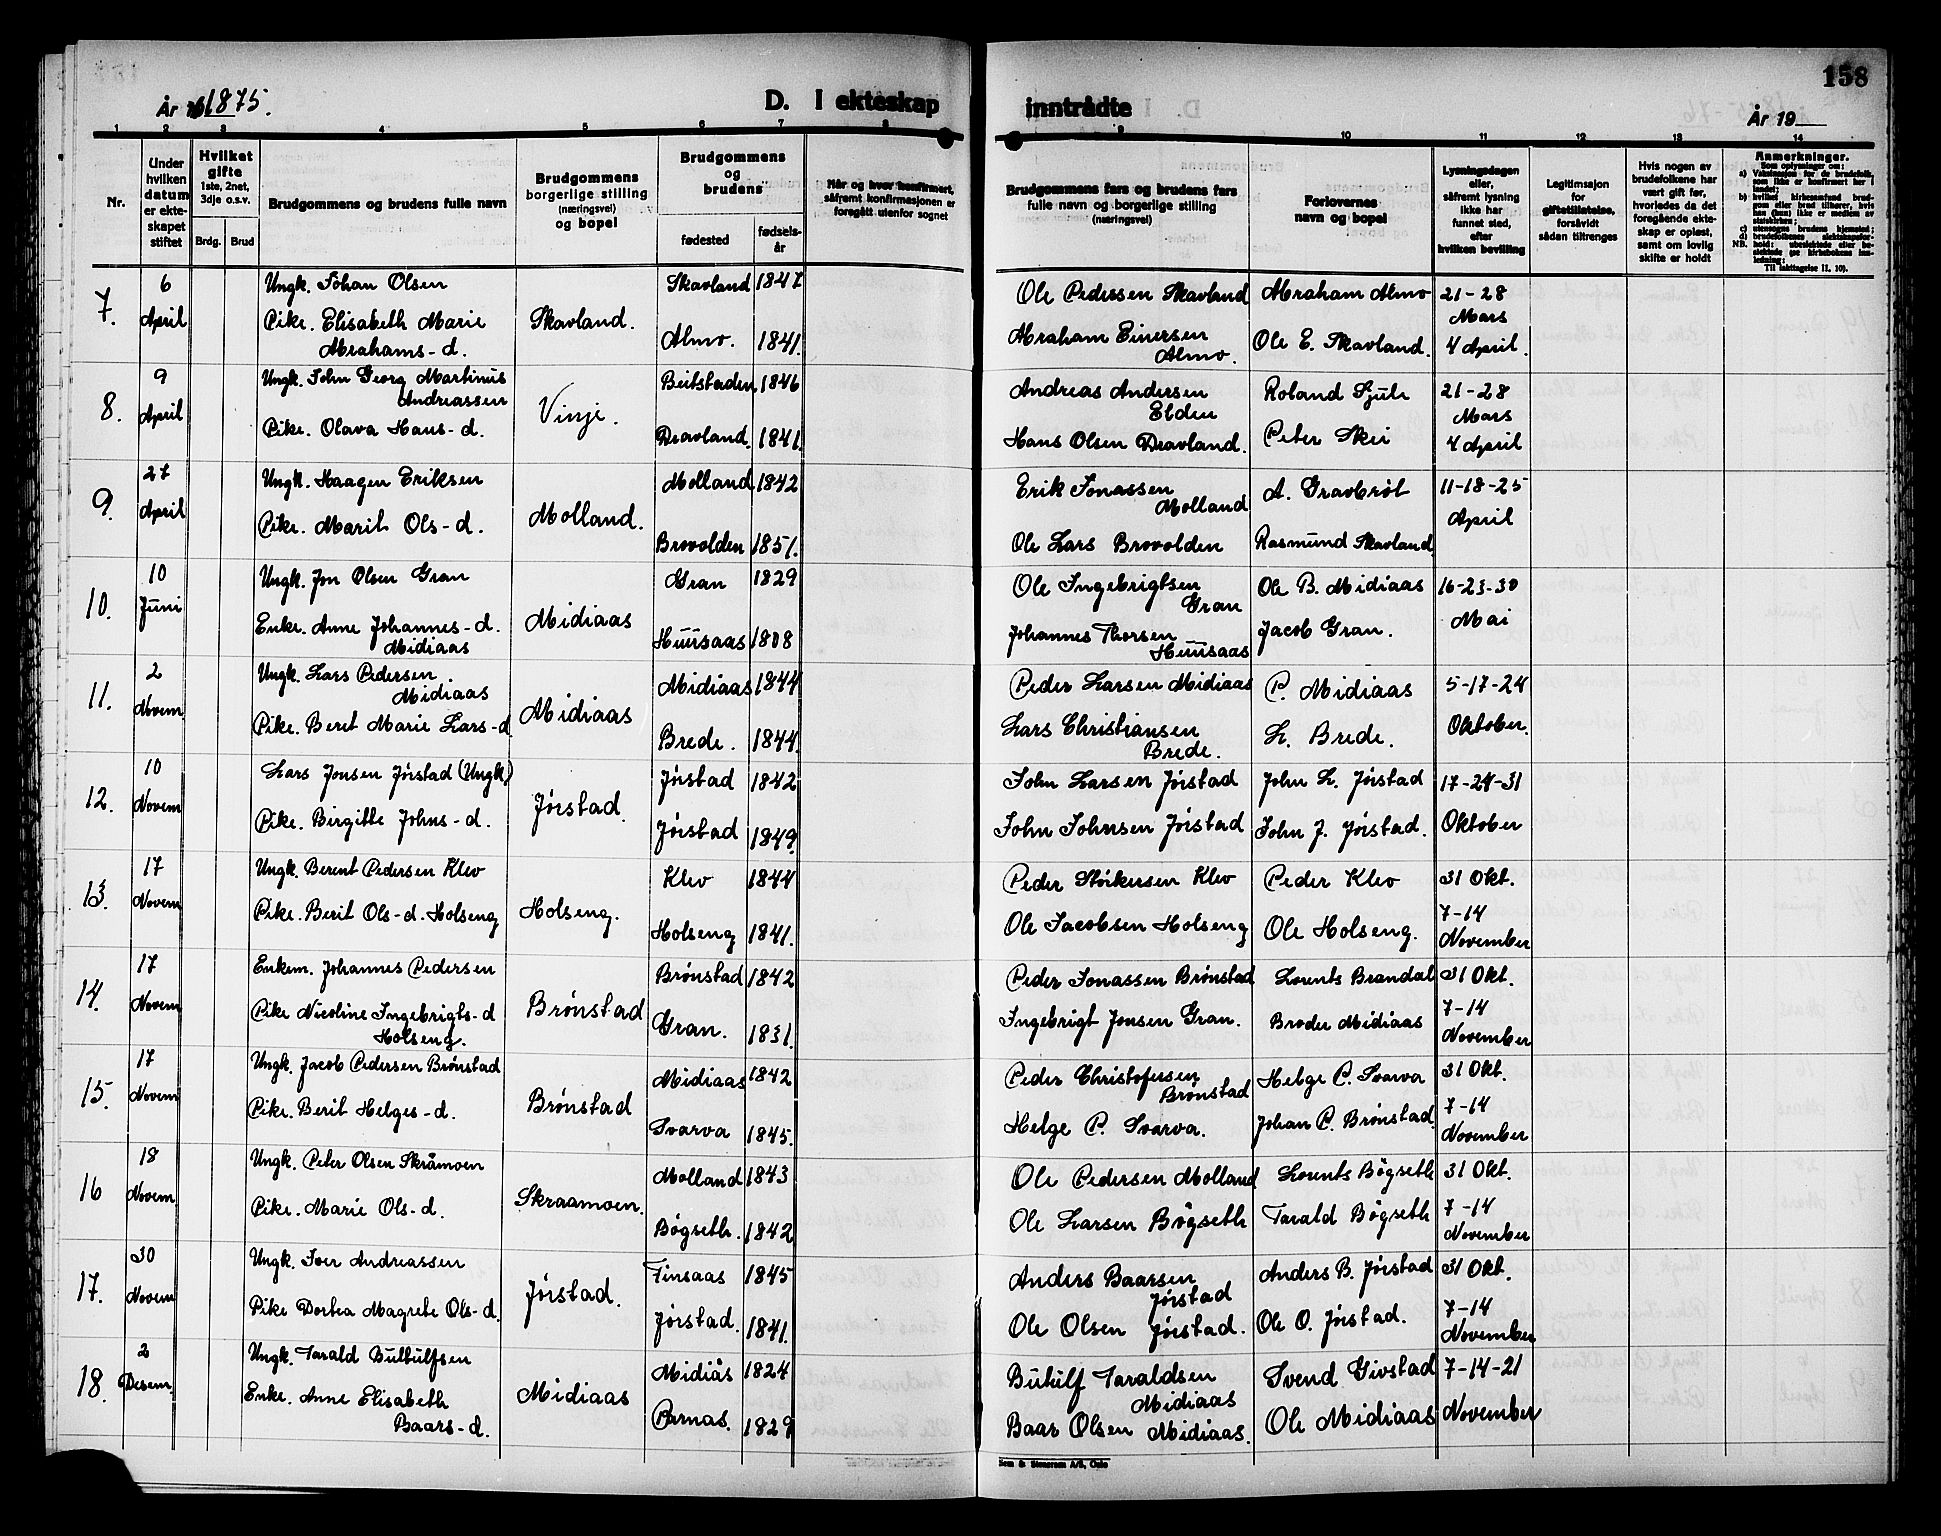 158
År 1875.
D. I ekteskap inntrådte
År 19
1 2 3 4 5 6 7 8 9 10 11 12 13 14
Nr.
Under hvilken datum er ekteskapet stiftet
Hvilket gifte 1ste, 2net, 3dje o.s.v.
Brdg. Brud
Brudgommens og brudens fulle navn
Brudgommens borgerlige stilling (næringsvei) og bopel
Brudgommens og brudens
fødested
fødselsår
Når og hvor konfirmert, såfremt konfirmasjonen er foregått utenfor sognet
Brudgommens fars og brudens fars fulle navn og borgerlige stilling (næringsvei)
Forlovernes navn og bopel
Lysningsdagen eller, såfremt lysning ikke har funnet sted, efter hvilken bevilling
Legitimasjon for giftetillatelse, forsåvidt sådan tiltrenges
Hvis nogen av brudefolkene har vært gift før, hvorledes da det foregående ekteskap er opløst, samt om lovlig skifte er holdt
Anmerkninger.
Som oplysninger om:
a) Vaksinasjon for de brudefolk, som ikke er konfirmert her i landet;
b) hvilket kirkesamfund brudgom eller brud tilhører, hvis han (hun) ikke er medlem av statskirken;
c) utensogns brudens hjemsted;
d) brudefolkenes slektskapsforhold: ubeslektede eller beslektede
NB.
Til iakttagelse II. 10).
7. 6 April Ungk. Johan Olsen Skavland. Skavland 1847 Ole Pedersen Skavland Abraham Almo 21-28 Mars
Pike. Elisabeth Marie Abrahams-d. Almo. 1841. Abraham Einersen Almo. Ole E. Skavland. 4 April.
8. 9 April Ungk. John Georg Martinus Andreassen Vinje. Beitstaden 1846 Andreas Andersen Elden Roland Gjule 21-28 Mars
Pike. Olava Hans-d. Dravland. 1841. Hans Olsen Dravland. Peter Skei 4 April
9. 27 April Ungk. Haagen Eriksen Molland. Molland 1842 Erik Jonassen Molland A. Gravbrøt 11-18-25 April
Pike. Marit Ols-d. Brovolden 1851. Ole Lars Brovolden Rasmund Skavland.
10. 10 Juni Ungk. Jon Olsen Gran Midiaas Gran 1829 Ole Ingebrigtsen Gran Ole B. Midiaas 16-23-30 Mai
Enke. Anne Johannes-d. Midiaas Huusaas 1808 Johannes Thorsen Huusaas Jacob Gran.
11. 2 Novem Ungk. Lars Pedersen Midiaas Midiaas Midiaas 1844 Peder Larsen Midiaas P. Midiaas 5-17-24 Oktober.
Pike. Berit Marie Lars-d. Brede. 1844. Lars Christiansen Brede. L. Brede.
12. 10 Novem Lars Jonsen Jørstad (Ungk.) Jørstad. Jørstad 1842 John Larsen Jørstad John L. Jørstad 17-24-31 Oktober
Pike. Birgitte Johns-d. Jørstad 1849. John Johnsen Jørstad John J. Jørstad.
13. 17 Novem Ungk. Berent Pedersen Klev Holseng. Klev 1844 Peder Størkersen Klev Peder Klev 31 Okt.
Pike. Berit Ols-d. Holseng Holseng 1841. Ole Jacobsen Holseng Ole Holseng. 7-14 November
14. 17 Novem Enkem. Johannes Pedersen Brønstad Brønstad 1842 Peder Jonassen Brønstad Lorents Brandal 31 Okt.
Pike Nicoline Ingebrigts-d Holseng. Gran. 1831. Ingebrigt Jonsen Gran. Broder Midiaas 7-14 November
15. 17 Novem Ungk. Jacob Pedersen Brønstad Brønstad Midiaas 1842 Peder Christofersen Brønstad Helge P. Svarva 31 Okt.
Pike. Berit Helges-d. Svarva 1845. Helge P. Svarva. Johan P. Brønstad. 7-14 November
16 18 Novem Ungk. Peter Olsen Skråmoen Skraamoen. Molland 1843 Ole Pedersen Molland Lorents Bøgseth 31 Okt.
Pike. Marie Ols-d. Bøgseth. 1842 Ole Larsen Bøgseth Tarald Bøgseth 7-14 November
17. 30 Novem Ungk. Iver Andreassen Jørstad. Finsaas 1845 Anders Baarsen Jørstad Anders B. Jørstad 31 Okt.
Pike Dortea Magrete Ols-d. Jørstad. 1841. Ole Olsen Jørstad. Ole O. Jørstad. 7-14 November
18. 2 Desem. Ungk. Tarald Butulfsen Midiaas Midiås 1824 Butulf Taraldsen Midiaas Svend Givstad 7-14-21 November
Enke. Anne Elisabeth Baars-d. Parnas. 1829 Baar Olsen Midiaas. Ole Midiaas
Sem & Stenersen A/S, Oslo